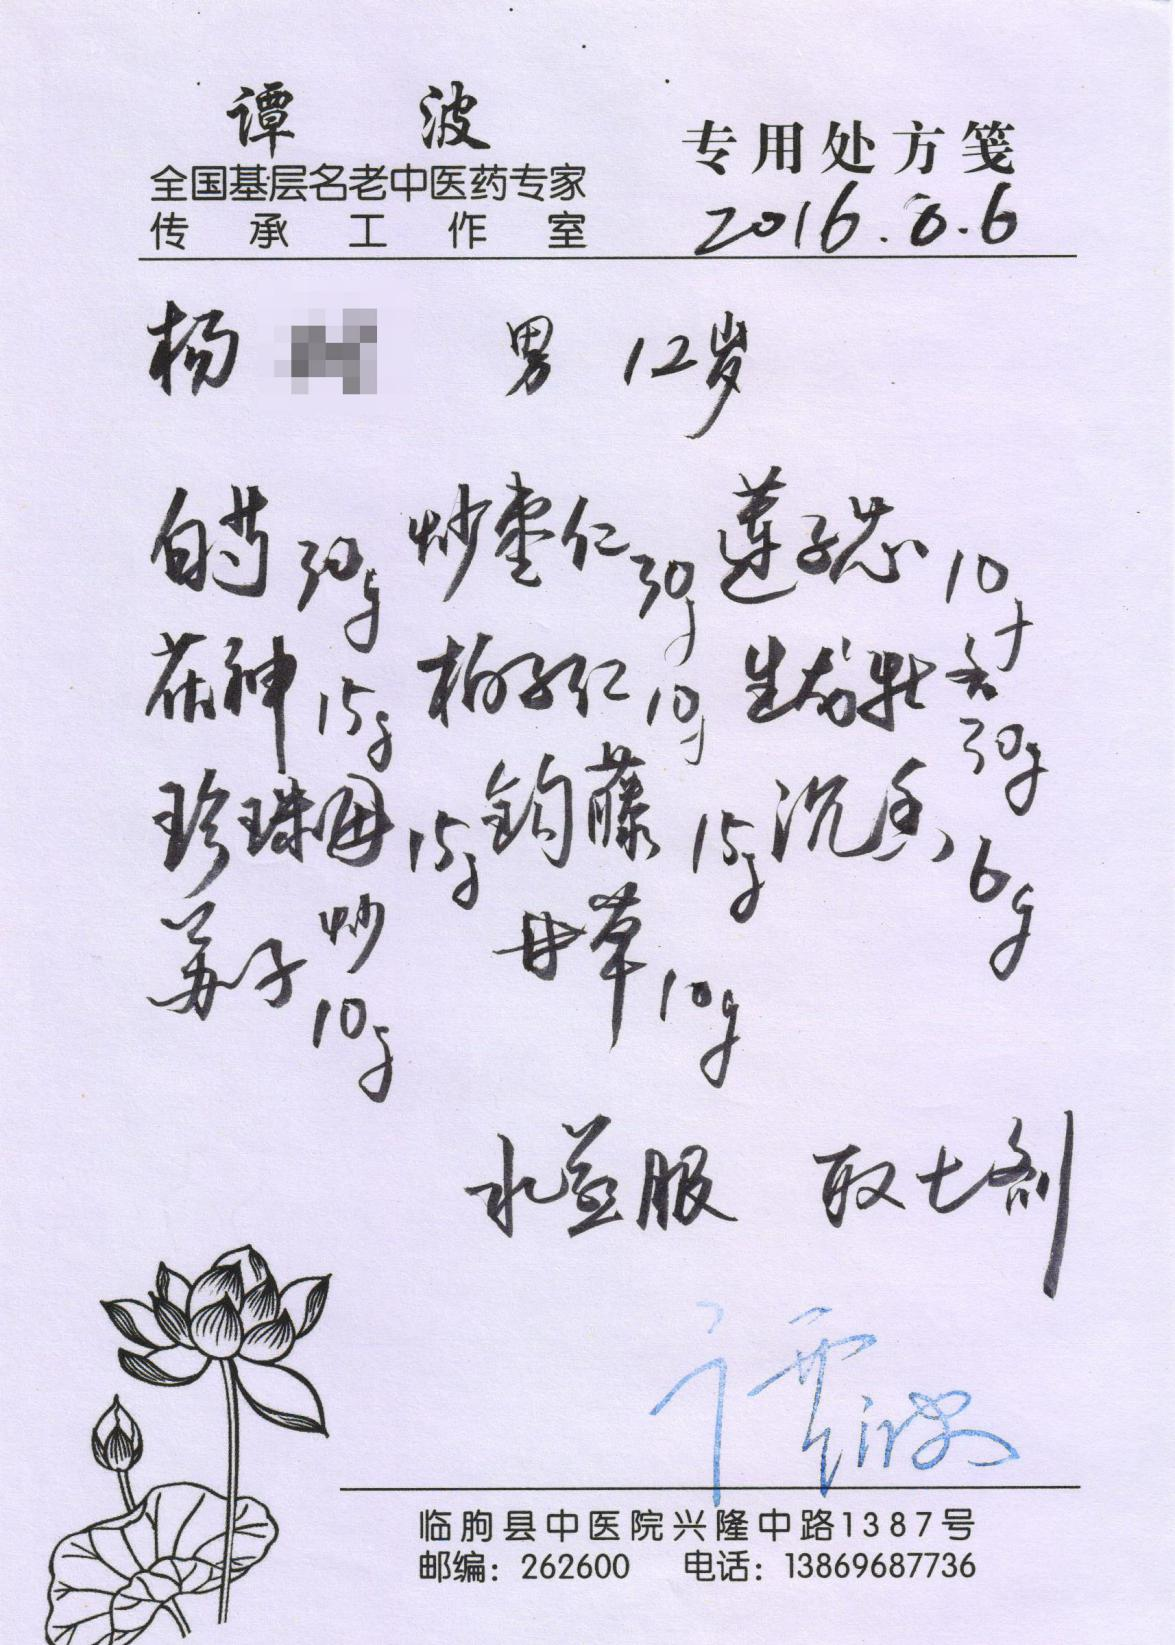 谭 波
全国基层名老中医药专家
传承工作室
专用处方笺
2016.8.6
杨 男 12岁
白芍30g 炒枣仁30g 莲子芯10g
茯神15g 柏子仁10g 生龙牡各30g
珍珠母15g 钩藤15g 沉香6g
苏子炒10g 甘草10g
水煎服 取七剂
谭波
临朐县中医院兴隆中路1387号
邮编：262600 电话：13869687736